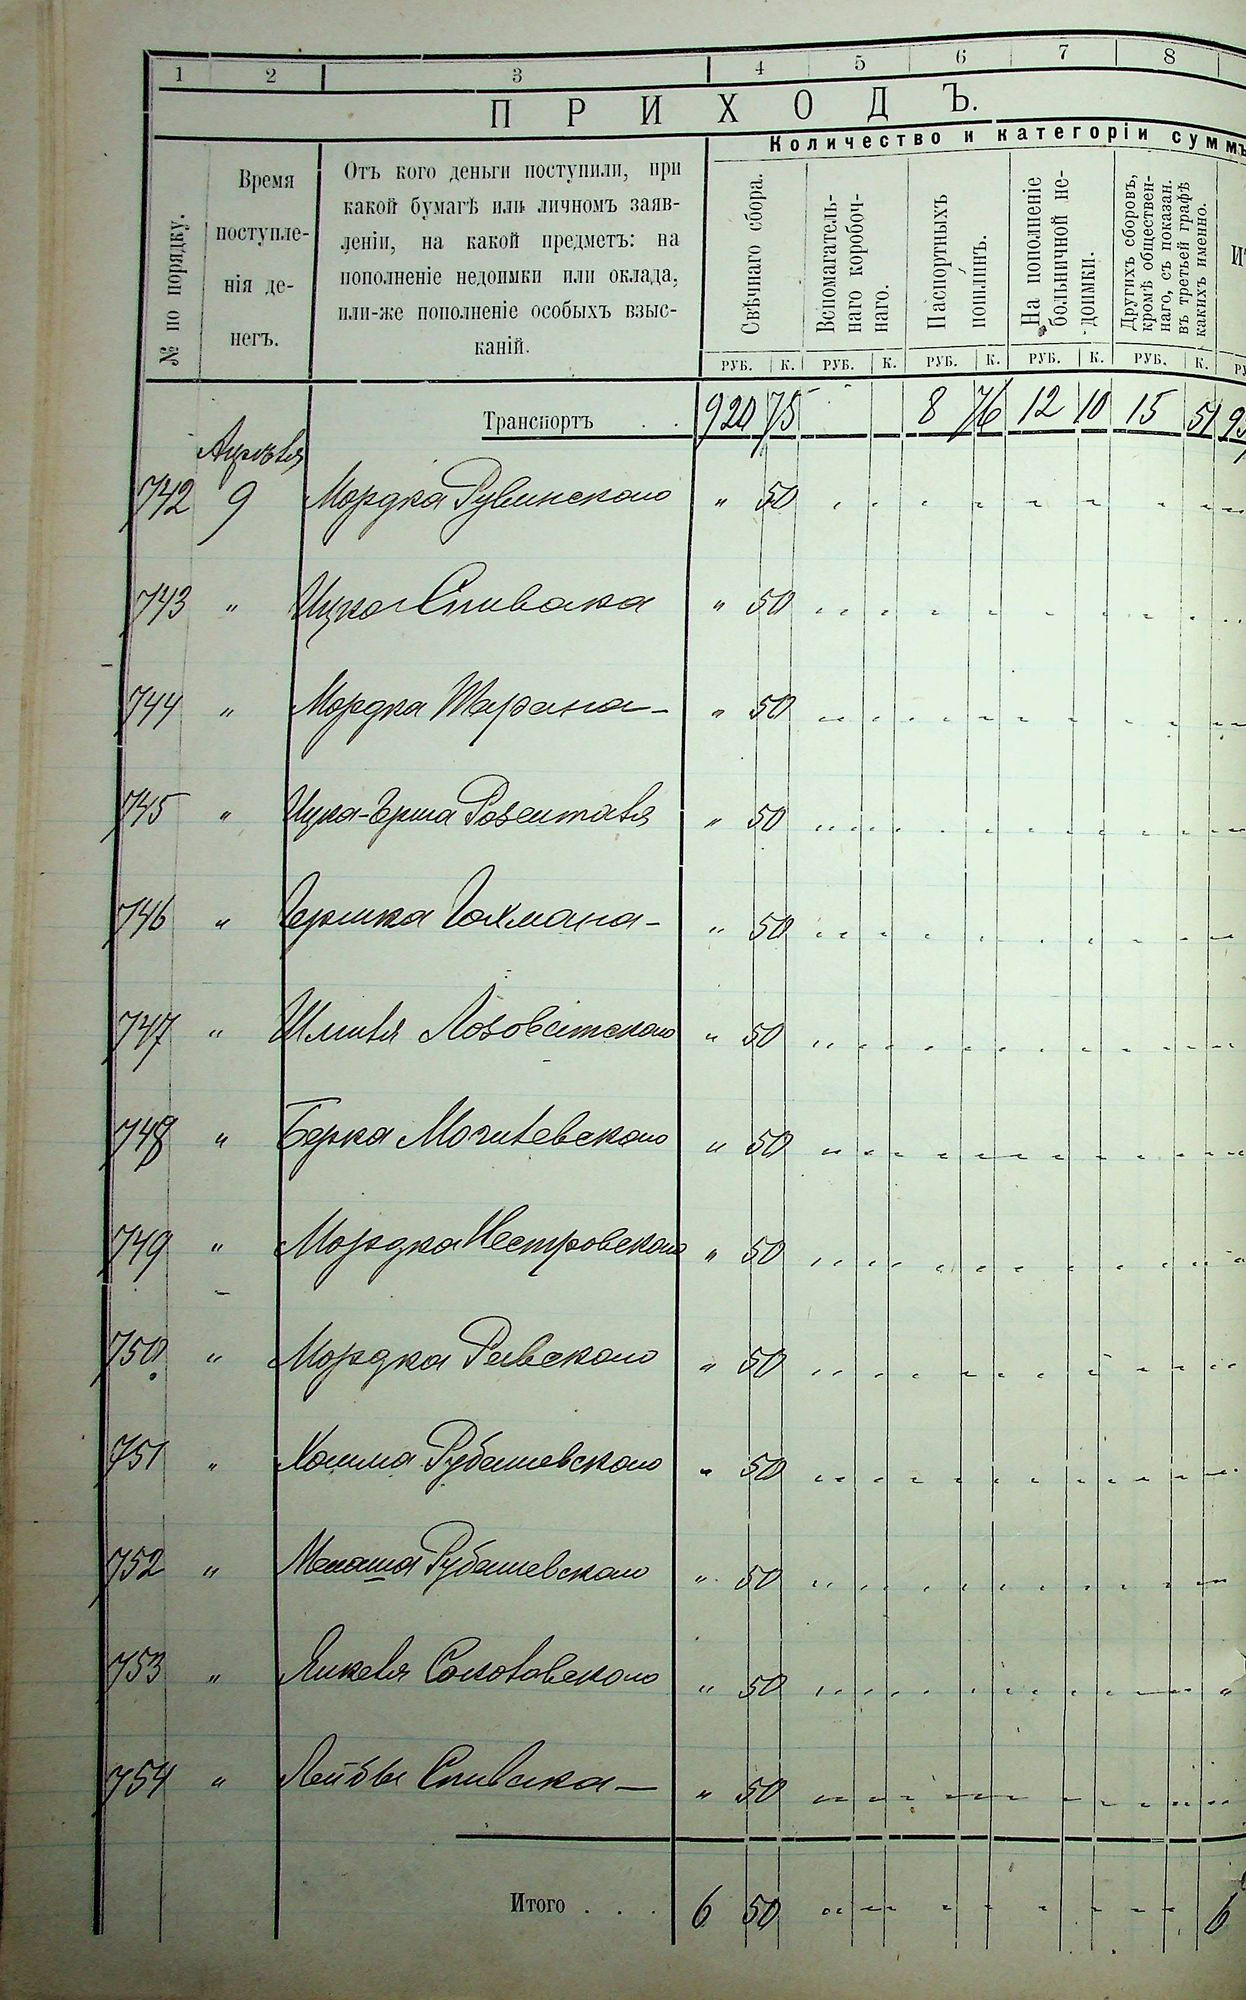 1 2 3 4 5 6 7 8
ПРИХОДЪ.
Количество и категоріи суммъ
№ по порядку.
Время
поступле-
нія де-
негъ.
Отъ кого деньги поступили, при
какой бумагѣ или личномъ заяв-
леніи, на какой предметъ: на
пополненіе недоимки или оклада,
или-же пополненіе особыхъ взыс-
каній.
Свѣчнаго сбора.
Вспомагатель-
наго коробоч-
наго.
Паспортныхъ
пошлинъ.
На пополненіе
больничной не-
доимки.
Другихъ сборовъ,
кромѣ обществен-
наго, съ показан.
въ третьей графѣ
какихъ именно.
РУБ. К. РУБ. К. РУБ. К. РУБ. К. РУБ. К.
Транспортъ . . 920 75 8 76 12 10 15 51
Апрѣля
742 9 Мордка Рувинского " 50
743 " Ицка Спивака " 50
744 " Мордка Тарана - " 50
745 " Ицка-Герша Розенталя " 50
746 " Гершка Гохмана - " 50
747 " Шмиля " 50
748 " Берка Могилевского " 50
749 " Мордка Нестровского " 50
750 " Мордка Ривского " 50
751 " Рубашевского " 50
752 " Рубашевского " 50
753 " Янкеля Соколовского " 50
754 " Лейбы Спивака - " 50
Итого . . . 6 50 6